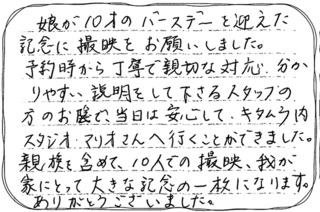 娘が10才のバースデーを迎えた
記念に撮映をお願いしました。
予約時から丁寧で親切な対応、分か
りやすい説明をして下さるスタッフの
方のお蔭で、当日は安心して、キタムラ内
スタジオ・マリオさんへ行くことができました。
親族を含めて、10人での撮映、我が
家にとって大きな記念の一枚になります。
ありがとうございました。